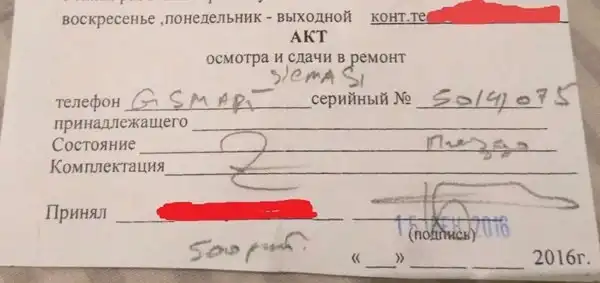 воскресенье ,понедельник - выходной конт.те
АКТ
осмотра и сдачи в ремонт
телефон G SMART серийный № 50141075
принадлежащего
Состояние
Комплектация
Принял
(подпись) 2016
500 руб.
« » 2016г.